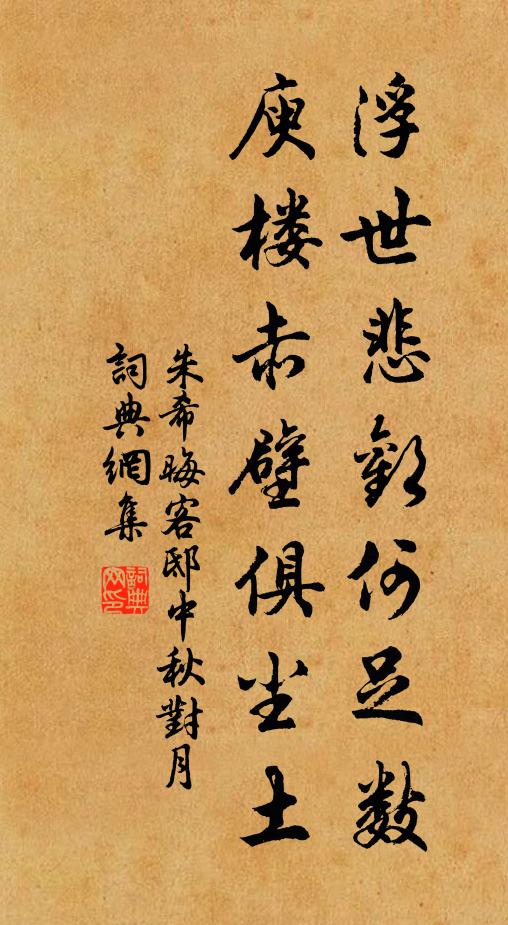 浮世悲歡何足数
庾楼赤壁俱尘土
朱希晦客邸中秋對月
詞典網集
詞典網印